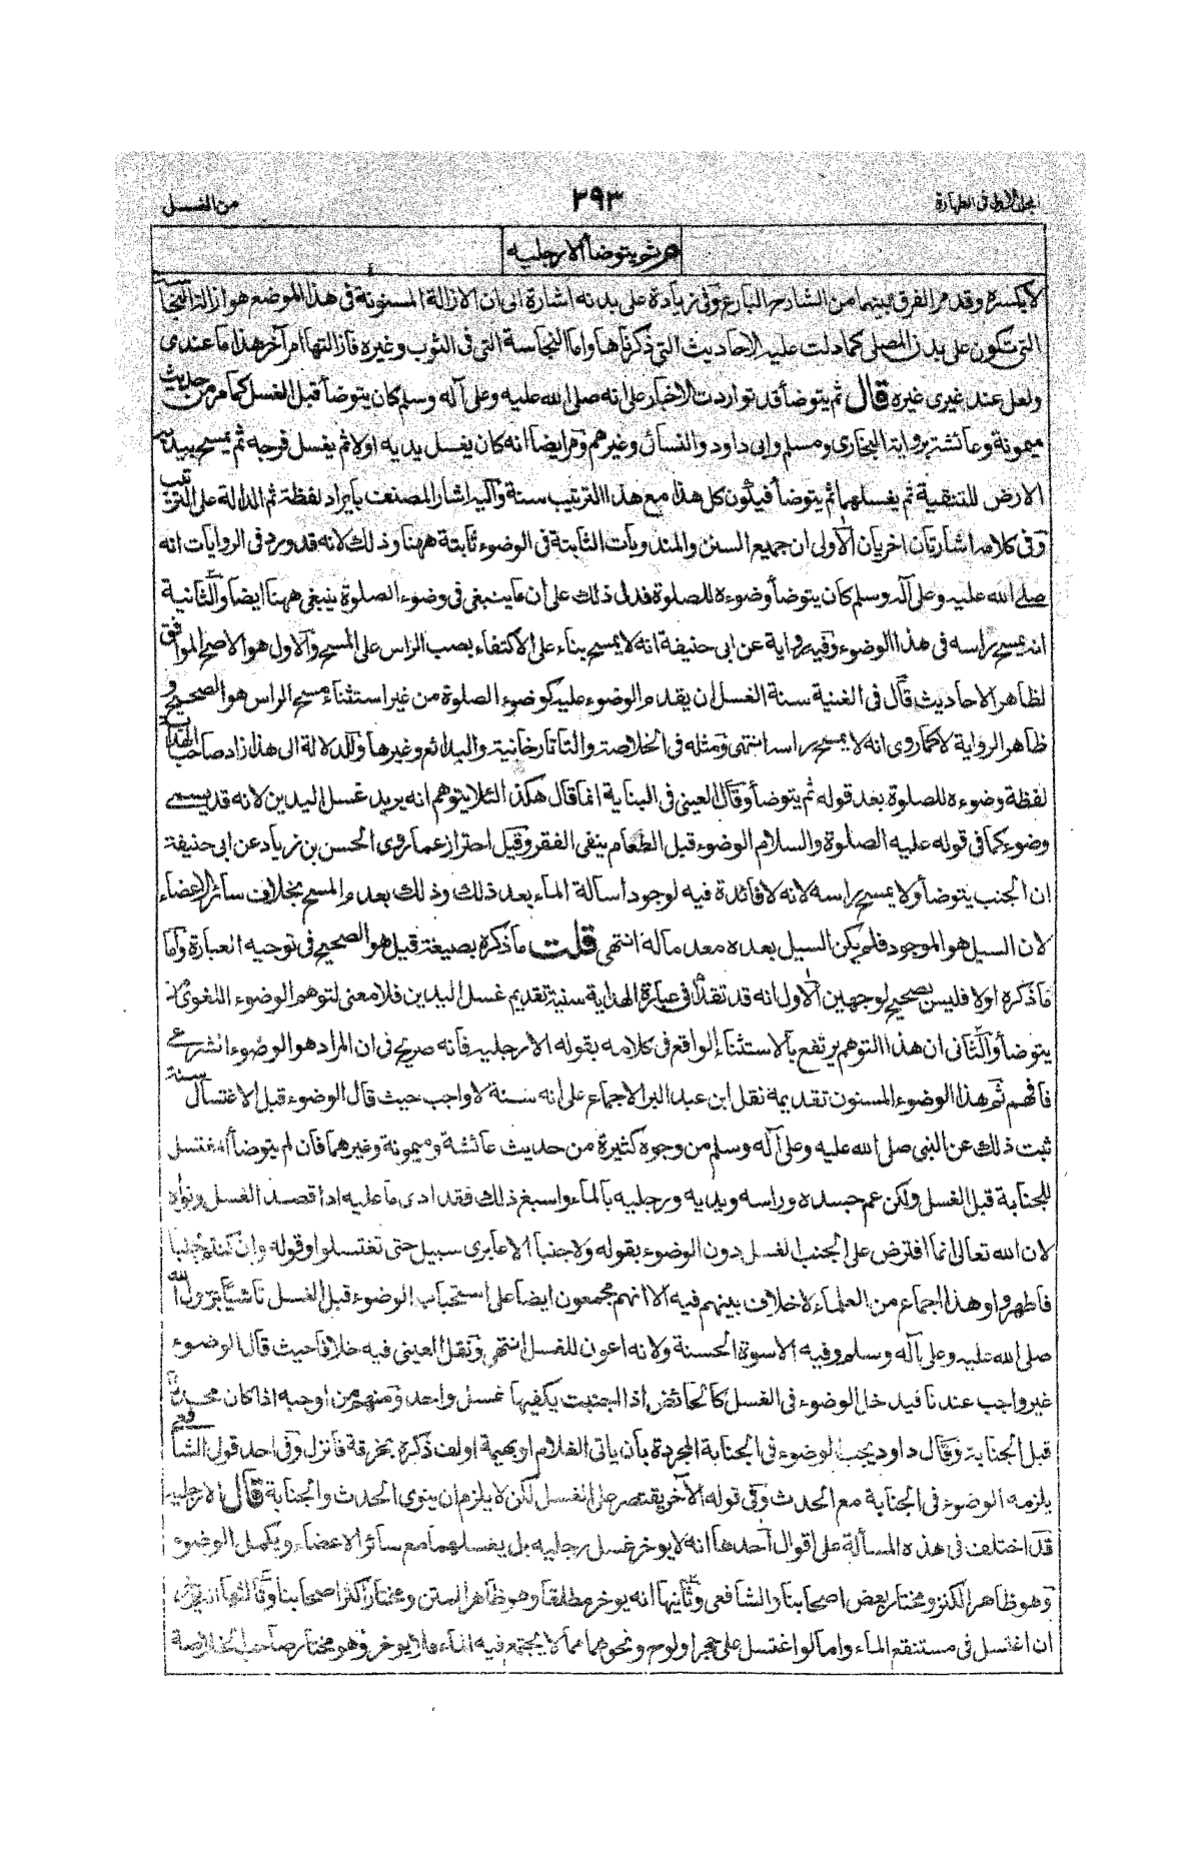 المجلد الاول فى الطهارة
٣٩٣
من الغسل
ثم يتوضأ الا رجليه
لا بكسره وقد مر الفرق بينهما من الشارح البارع وفى زيادة على بدنه اشارة الى ان الازالة المسنونة فى هذا الموضع هو ازالة النجاسة
التى تكون على بدن المصلى كما دلت عليه الاحاديث التى ذكرناها واما النجاسة التى فى الثوب وغيره فازالتها امر آخر هذا ما عندى
ولعل عند غيرى غيره قال ثم يتوضأ قد تواردت الاخبار على انه صلى الله عليه وعلى آله وسلم كان يتوضأ قبل الغسل كما مر من حديث
ميمونة وعائشة برواية البخارى ومسلم وابى داود والنسائى وغيرهم ومر ايضا انه كان يغسل يديه اولا ثم يغسل فرجه ثم يمسح بيده
الارض للتنقية ثم يغسلهما ثم يتوضأ فيكون كل هذا مع هذا الترتيب سنة واليه اشار المصنف بايراد لفظة ثم الدالة على الترتيب
وفى كلامه اشارتان اخريان الاولى ان جميع السنن والمندوبات الثابتة فى الوضوء ثابتة ههنا وذلك لانه قد ورد فى الروايات انه
صلى الله عليه وعلى آله وسلم كان يتوضأ وضوءه للصلوة فدل ذلك على ان ما ينبغى فى وضوء الصلوة ينبغى ههنا ايضا والثانية
انه يمسح براسه فى هذا الوضوء وفيه رواية عن ابى حنيفة انه لا يمسح بناء على الاكتفاء بصب الراس على المسح والاول هو الاصح الموافق
لظاهر الاحاديث قال فى الغنية سنة الغسل ان يقدم الوضوء عليه كوضوء الصلوة من غير استثناء مسح الراس هو الصحيح و
ظاهر الرواية لا كما روى انه لا يمسح براسه انتهى ومثله فى الخلاصة والتاتارخانية والبدائع وغيرها وللدلالة الى هذا زاد صاحب الهداية
لفظة وضوءه للصلوة بعد قوله ثم يتوضأ وقال العينى فى البناية انما قال هكذا لئلا يتوهم انه يريد غسل اليدين لانه قد يسمى
وضوء كما فى قوله عليه الصلوة والسلام الوضوء قبل الطعام ينفى الفقر وقيل احتراز عما روى الحسن بن زياد عن ابى حنيفة
ان الجنب يتوضأ ولا يمسح براسه لانه لا فائدة فيه لوجود اسالة الماء بعد ذلك وذلك بعدم المسح بخلاف سائر الاعضاء
لان السيل هو الموجود فلم يكن السيل بعده معد ماله انتهى قلت ما ذكره بصيغة قيل هو الصحيح فى توجيه العبارة واما
ما ذكره اولا فليس بصحيح لوجهين الاول انه قد تقدم فى عبارة الهداية سنية تقديم غسل اليدين فلا معنى لتوهم الوضوء اللغوى من
يتوضأ والثانى ان هذا التوهم يرتفع بالاستثناء الواقع فى كلامه بقوله الا رجليه فانه صريح فى ان المراد هو الوضوء الشرعى
فافهم ثم هذا الوضوء المسنون تقديمه نقل ابن عبد البر الاجماع على انه سنة لا واجب حيث قال الوضوء قبل الاغتسال سنة
ثبت ذلك عن النبى صلى الله عليه وعلى آله وسلم من وجوه كثيرة من حديث عائشة وميمونة وغيرهما فان لم يتوضأ المغتسل
للجنابة قبل الغسل ولكن عم جسده وراسه ويديه ورجليه بالماء واسبغ ذلك فقد ادى ما عليه اذا قصد الغسل ونواه
لان الله تعالى انما افترض على الجنب الغسل دون الوضوء بقوله ولا جنبا الا عابرى سبيل حتى تغتسلوا وقوله وان كنتم جنبا
فاطهروا وهذا اجماع من العلماء لا خلاف بينهم فيه الا انهم مجمعون ايضا على استحباب الوضوء قبل الغسل تاسيا برسول الله
صلى الله عليه وعلى آله وسلم وفيه الاسوة الحسنة ولانه اعون للغسل انتهى ونقل العينى فيه خلافا حيث قال الوضوء
غير واجب عندنا فيدخل الوضوء فى الغسل كالحائض اذا اجنبت يكفيها غسل واحد ومنهم من اوجبه اذا كان محدثا
قبل الجنابة وقال داود يجب الوضوء فى الجنابة المجردة بان ياتى الغلام او بهيمة او لف ذكره بخرقة فانزل وفى احد قولى الشافعى
يلزمه الوضوء فى الجنابة مع الحدث وفى قوله الآخر يقتصر على الغسل لكن لا يلزم ان ينوى الحدث والجنابة قال الا رجليه
قد اختلف فى هذه المسألة على اقوال احدها انه لا يوخر غسل رجليه بل يغسلهما مع سائر الاعضاء ويكمل الوضوء
وهو ظاهر الكنز ومختار بعض اصحابنا والشافعى وثانيها انه يوخر مطلقا وهو ظاهر المتن ومختار اكثر اصحابنا وثالثها التفصيل
ان اغتسل فى مستنقع الماء واما لو اغتسل على حجر او لوح ونحوهما مما لا يجتمع فيه الماء فلا يوخر وهو مختار صاحب الخلاصة